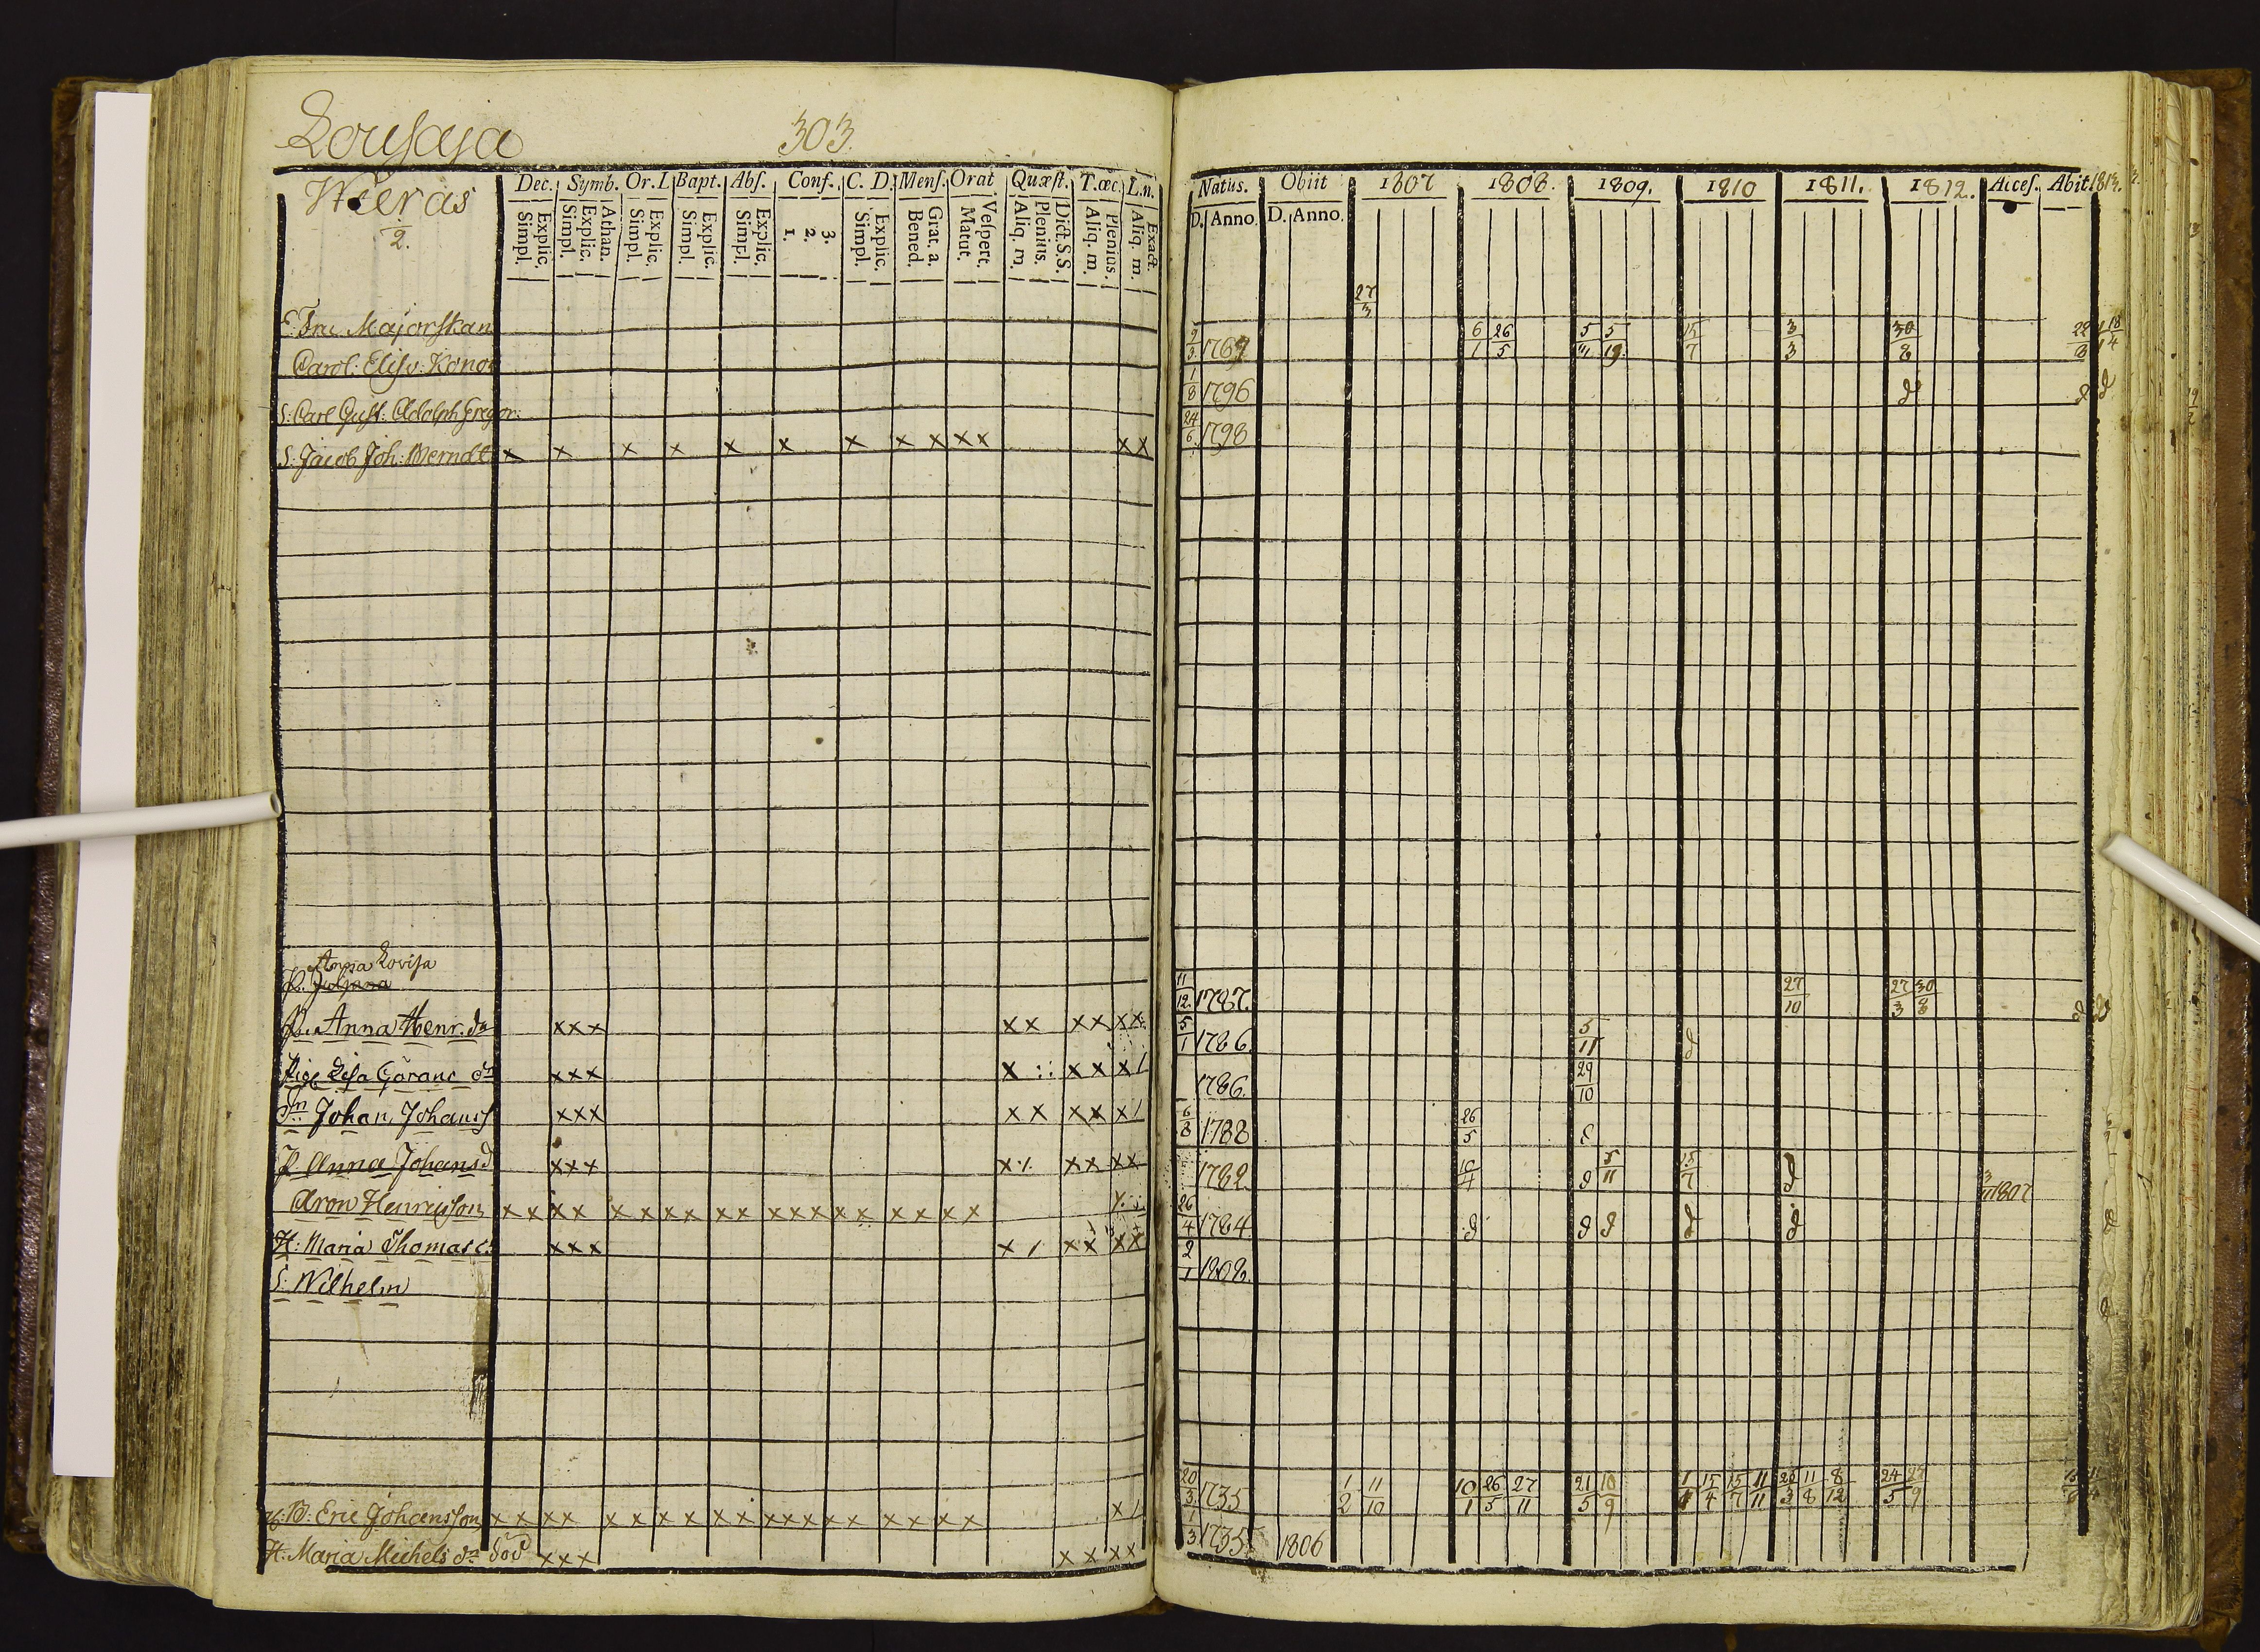 303.
Wieras
2.
Dec. Symb. Or. L Bapt. Abſ. Conf. C. D. Menſ. Orat Quæſt. T.œc. L.n.
Explic. Simpl. Athan. Explic. Simpl. Explic. Simpl. Explic. Simpl. Explic. Simpl. 3. 2. 1. Explic. Simpl. Grat. a. Bened. Veſpert. Matut. Dict.S.S. Plenius. Aliq. m. Plenius. Aliq. m. Exact. Aliq. m.
Natus. Obiit 1807 1808. 1809. 1810 1811. 1812. Acceſ. Abit 1813.
D. Anno. D. Anno.
27/3
Majorſkan 9/3 1769 6/1 26/5 15/7 3/3 30/8
Carol: Eliſ 1/8 1796
S: Carl Guſt: Adolph Gregor: 24/6 1798
S: Jacob Joh: Berndt x x x x x x x x x x x x x
Anna Loviſa
P. Juliana 11/12 1787. 27/10 27/3 30/8
P. Anna Henr. dr xxx xx xx xx 5/1 1786 5/11
Pig. Liſa Göranſ dr xxx x :: xx x/ 1786. 29/10
Johan Johanſſ xxx xx xx x/ 6/8 1788 26/5
P. Anna Johansd xxx x /. xx xx 1782 5/11 15/7 1807
Aron Henricſſon xx xx xx xx xx xxx xx xx xx 26/4 1784
H: Maria Thomas dr xxx x / xx xx 2/1 1808.
S: Wilhelm
B: Eric Johansſon xx xx xx xx xx xxx xx xx xx x/ 20/3 1735 1/2 11/10 10/1 26/5 27/11 21/5 10/9 15/4 15/7 11/11 11/8 8/12 24/5
H. Maria Michels dr död xxx xx xx 1/3 1735 1806